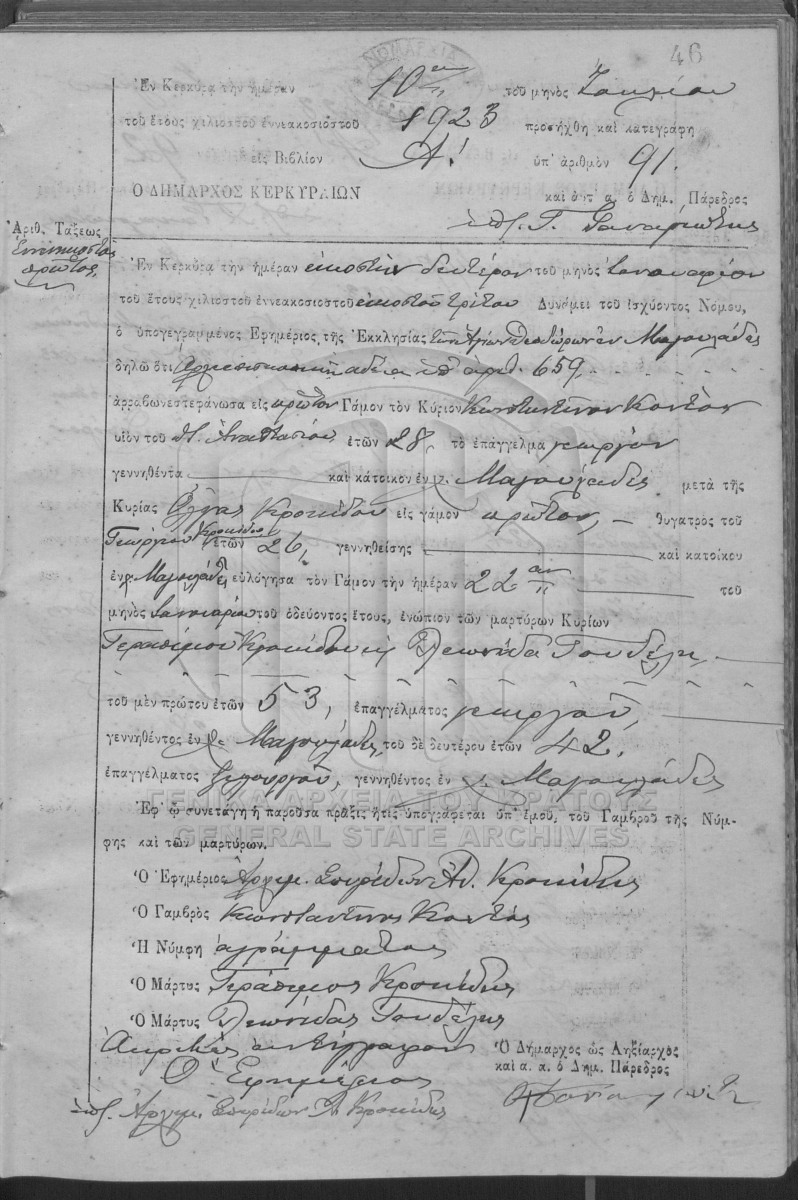 46
ΝΟΜΑΡΧΙΑ
Ἐν Κερκύρᾳ τὴν ἡμέραν 10ην τοῦ μηνὸς Ἰουλίου
τοῦ ἔτους χιλιοστοῦ ἐννεακοσιοστοῦ 1923 προσήχθη καὶ κατεγράφη
εἰς Βιβλίον Α! ὑπ' ἀριθμὸν 91.
Ο ΔΗΜΑΡΧΟΣ ΚΕΡΚΥΡΑΙΩΝ καὶ ἀντ' α. ὁ Δημ. Πάρεδρος
ὑπ. Γ.
Ἀριθ. Τάξεως
Ἐννενηκοστὸς
πρῶτος,
Ἐν Κερκύρᾳ τὴν ἡμέραν εἰκοστὴν δευτέραν τοῦ μηνὸς Ἰανουαρίου
τοῦ ἔτους χιλιοστοῦ ἐννεακοσιοστοῦ εἰκοστοῦ τρίτου Δυνάμει τοῦ ἰσχύοντος Νόμου,
ὁ ὑπογεγραμμένος Ἐφημέριος τῆς Ἐκκλησίας τῶν Ἁγίων Θεοδώρων ἐν Μαγουλάδες
δηλῶ ὅτι Ἀρχιεπισκοπικῇ ἀδείᾳ ὑπ' ἀριθ. 659,
ἀρραβωνεστεφάνωσα εἰς πρῶτον Γάμον τὸν Κύριον Κωνσταντῖνον Κοντὸν
υἱὸν τοῦ Ἀναστασίου ἐτῶν 28, τὸ ἐπάγγελμα γεωργὸν
γεννηθέντα καὶ κάτοικον ἐν Μαγουλάδες μετὰ τῆς
Κυρίας Ὄλγας Κροκίδου εἰς γάμον πρῶτον, θυγατρὸς τοῦ
Γεωργίου Κροκίδου ἐτῶν 26, γεννηθείσης καὶ κατοίκου
ἐν Μαγουλάδες εὐλόγησα τὸν Γάμον τὴν ἡμέραν 22αν τοῦ
μηνὸς Ἰανουαρίου τοῦ ὁδεύοντος ἔτους, ἐνώπιον τῶν μαρτύρων Κυρίων
Γερασίμου Κροκίδου κ Λεωνίδα Γουδέλη,
τοῦ μὲν πρώτου ἐτῶν 53, ἐπαγγέλματος γεωργοῦ,
γεννηθέντος ἐν Μαγουλάδες, τοῦ δὲ δευτέρου ἐτῶν 42,
ἐπαγγέλματος ξυλουργοῦ, γεννηθέντος ἐν Μαγουλάδες
ΓΕΝΙΚΑ ΑΡΧΕΙΑ ΤΟΥ ΚΡΑΤΟΥΣ
Ἐφ' ᾧ συνετάγη ἡ παροῦσα πρᾶξις ἥτις ὑπογράφεται ὑπ' ἐμοῦ, τοῦ Γαμβροῦ τῆς Νύμ-
GENERAL STATE ARCHIVES
φης καὶ τῶν μαρτύρων.
Ὁ Ἐφημέριος Ἀρχιμ. Σπυρίδων Ἀν. Κροκίδης
Ὁ Γαμβρὸς Κωνσταντῖνος Κοντός
Ἡ Νύμφη ἀγράμματος
Ὁ Μάρτυς Γεράσιμος Κροκίδης
Ὁ Μάρτυς Λεωνίδας Γουδέλης
Ἀκριβὲς ἀντίγραφον
Ὁ Ἐφημέριος
ὑπ. Ἀρχιμ. Σπυρίδων Ἀ Κροκίδης
Ὁ Δήμαρχος ὡς Ληξίαρχος
καὶ α. α. ὁ Δημ. Πάρεδρος